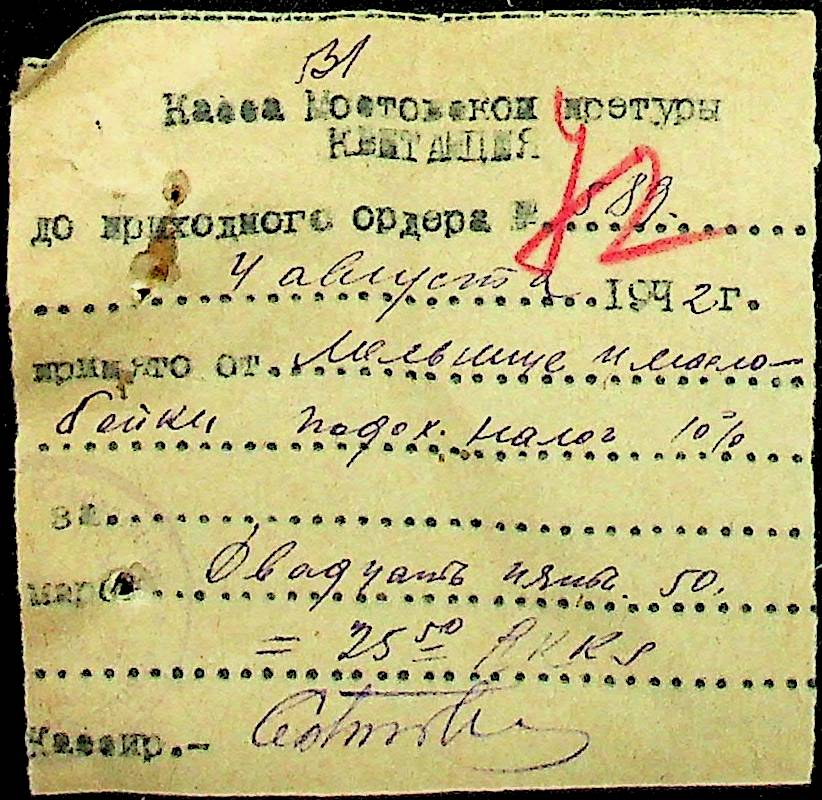 Касса Мостовской претуры
КВИТАНЦИЯ
до приходного ордера № 589.
4 августа 1942 г.
принято от Мельнице и масло-
бойки подох. налог 10%
за
марок Двадцать пять. 50.
= 25 50 RKKs
Кассир.-